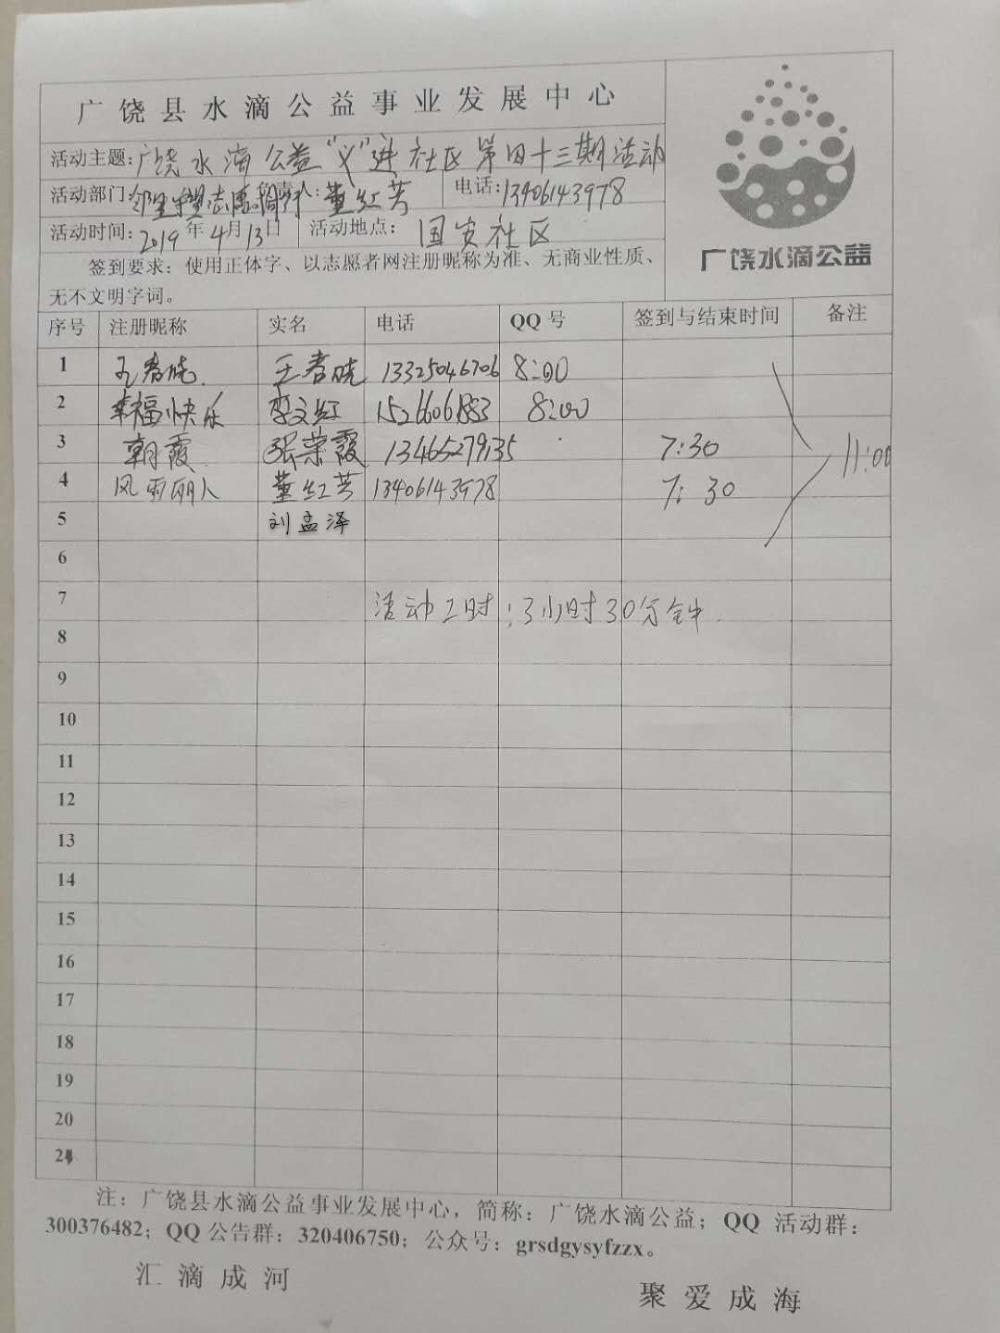 广饶县水滴公益事业发展中心
活动主题:广饶水滴公益"义"进社区第四十三期活动
活动部门: 负责人:董红芳 电话:13406143978
活动时间:2019年4月13日 活动地点:国安社区
签到要求：使用正体字、以志愿者网注册昵称为准、无商业性质、
无不文明字词。
广饶水滴公益
序号 注册昵称 实名 电话 QQ号 签到与结束时间 备注
1 春晓 王春晓 13325046706 8:00
2 幸福快乐 李文红 15266061883 8:00
3 朝霞 张荣霞 13465279135 7:30
11:00
4 风雨丽人 董红芳 13406143978 7:30
5 刘孟泽
6
7 活动工时:3小时30分钟.
8
9
10
11
12
13
14
15
16
17
18
19
20
21
注：广饶县水滴公益事业发展中心，简称：广饶水滴公益；QQ 活动群：
300376482；QQ 公告群：320406750；公众号：grsdgysyfzzx。
汇滴成河
聚爱成海